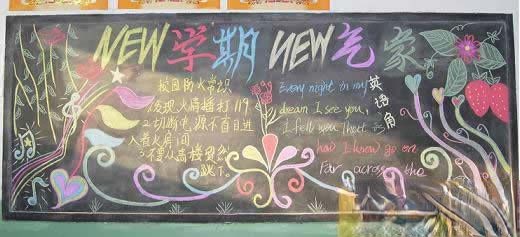 NEW学期 NEW气象
校园防火常识
1发现火扁播打119
2.切断电源不盲目进
入着火房间
3不要从高楼贸然
跳下。
Every night in my
dream I see you,
I fell you Thart is
how I know go on
Far across the
英语角